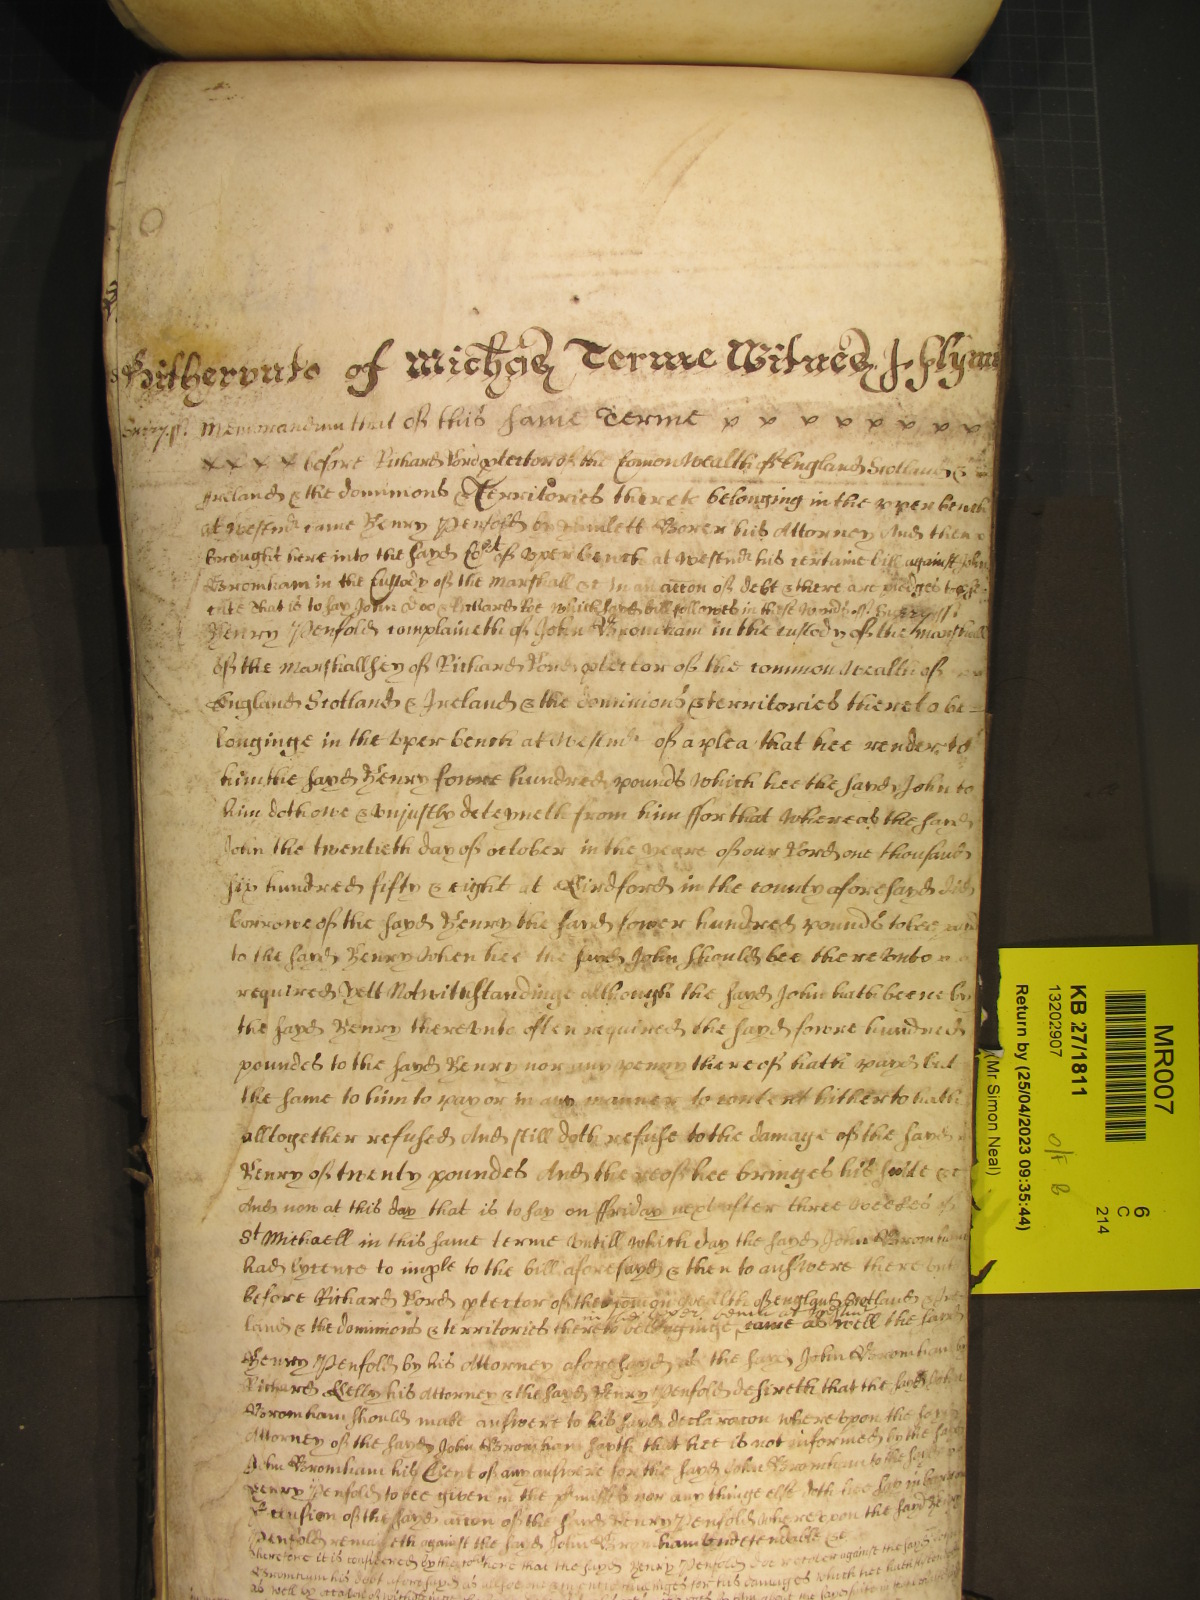 Hithervnto of Michais Terme Witnes J Glynn
Memorandum that of this same Terme x x x x x x x x
x x x x before Richard Lord ptector of the Comon Wealth of England Scotland &
Ireland & the dominions & Territories thereto belonging in the vpper bench
at Westmr came Henry Penfold by Hamlett Borer his Attorney And then
brought here into the sayd Cort of vper bench at Westmr his certaine bill against John
Bromham in the Custody of the Marshall &c In an accon of debt & there are pledges
that is to say John Doo & Richard Roe which sayd bill followes in these words
Henry Penfold complaineth of John Bromham in the custody of the marshall
of the marshallsey of Richard Lord ptector of the common Wealth of
England Scotland & Ireland & the dominions & territories thereto be=
longinge in the vper bench at Westmr of a plea that hee render to
him the sayd Henry fowre hundred pounds which hee the sayd John to
him doth owe & vnjustly deteyneth from him ffor that whereas the sayd
John the twentieth day of october in the yeare of our Lord one thousand
six hundred fifty & eight at Kirdford in the county aforesayd did
borrowe of the sayd Henry the sayd fower hundred pounds to bee
to the sayd Henry when hee the sayd John should bee therevnto
required Yett Notwithstandinge although the sayd John hath beene by
the sayd Henry therevnto often required the sayd fowre hundred
poundes to the sayd Henry nor any penny thereof hath payd but
the same to him to pay or in any manner to content hitherto hath
alltogether refused And still doth refuse to the damage of the sayd
Henry of twenty poundes And thereof hee bringes his suite &c
And now at this day that is to say on ffriday next after three weekes of
St Michaell in this same terme vntill which day the sayd John Bromham
had lycence to imple to the bill aforesayd & then to answere there
before Richard Lord ptector of the Comon Wealth of England Scotland &
in the vper bench at Westmr
land & the dominions & territories thereto belonginge came as well the sayd
Henry Penfold by his Attorney aforesayd as the sayd John Bromham by
Richard Kelly his Attorney & the sayd Henry Penfold desireth that the sayd John
Bromham should make answere to his sayd declaracon wherevpon the sayd
Attorney of the sayd John Bromham sayth that hee is not informed by the sayd
John Bromham his Client of any answere for the sayd John Bromham to the sayd
Henry Penfold to bee given in the pmisses nor any thinge else doth hee say in
of the sayd accon of the sayd Henry Penfold wherevpon the sayd Henry
Penfold remaineth against the sayd John Bromham vndefended &c
Therefore it is considered by the Cort here that the sayd Henry Penfold doe recover against the sayd John
Bromham his debt aforesayd as allsoe for his damages which hee hath
MR007
KB 27/1811
13202907
Return by (25/04/2023 09:35:44)
(Mr Simon Neal)
6
C
214